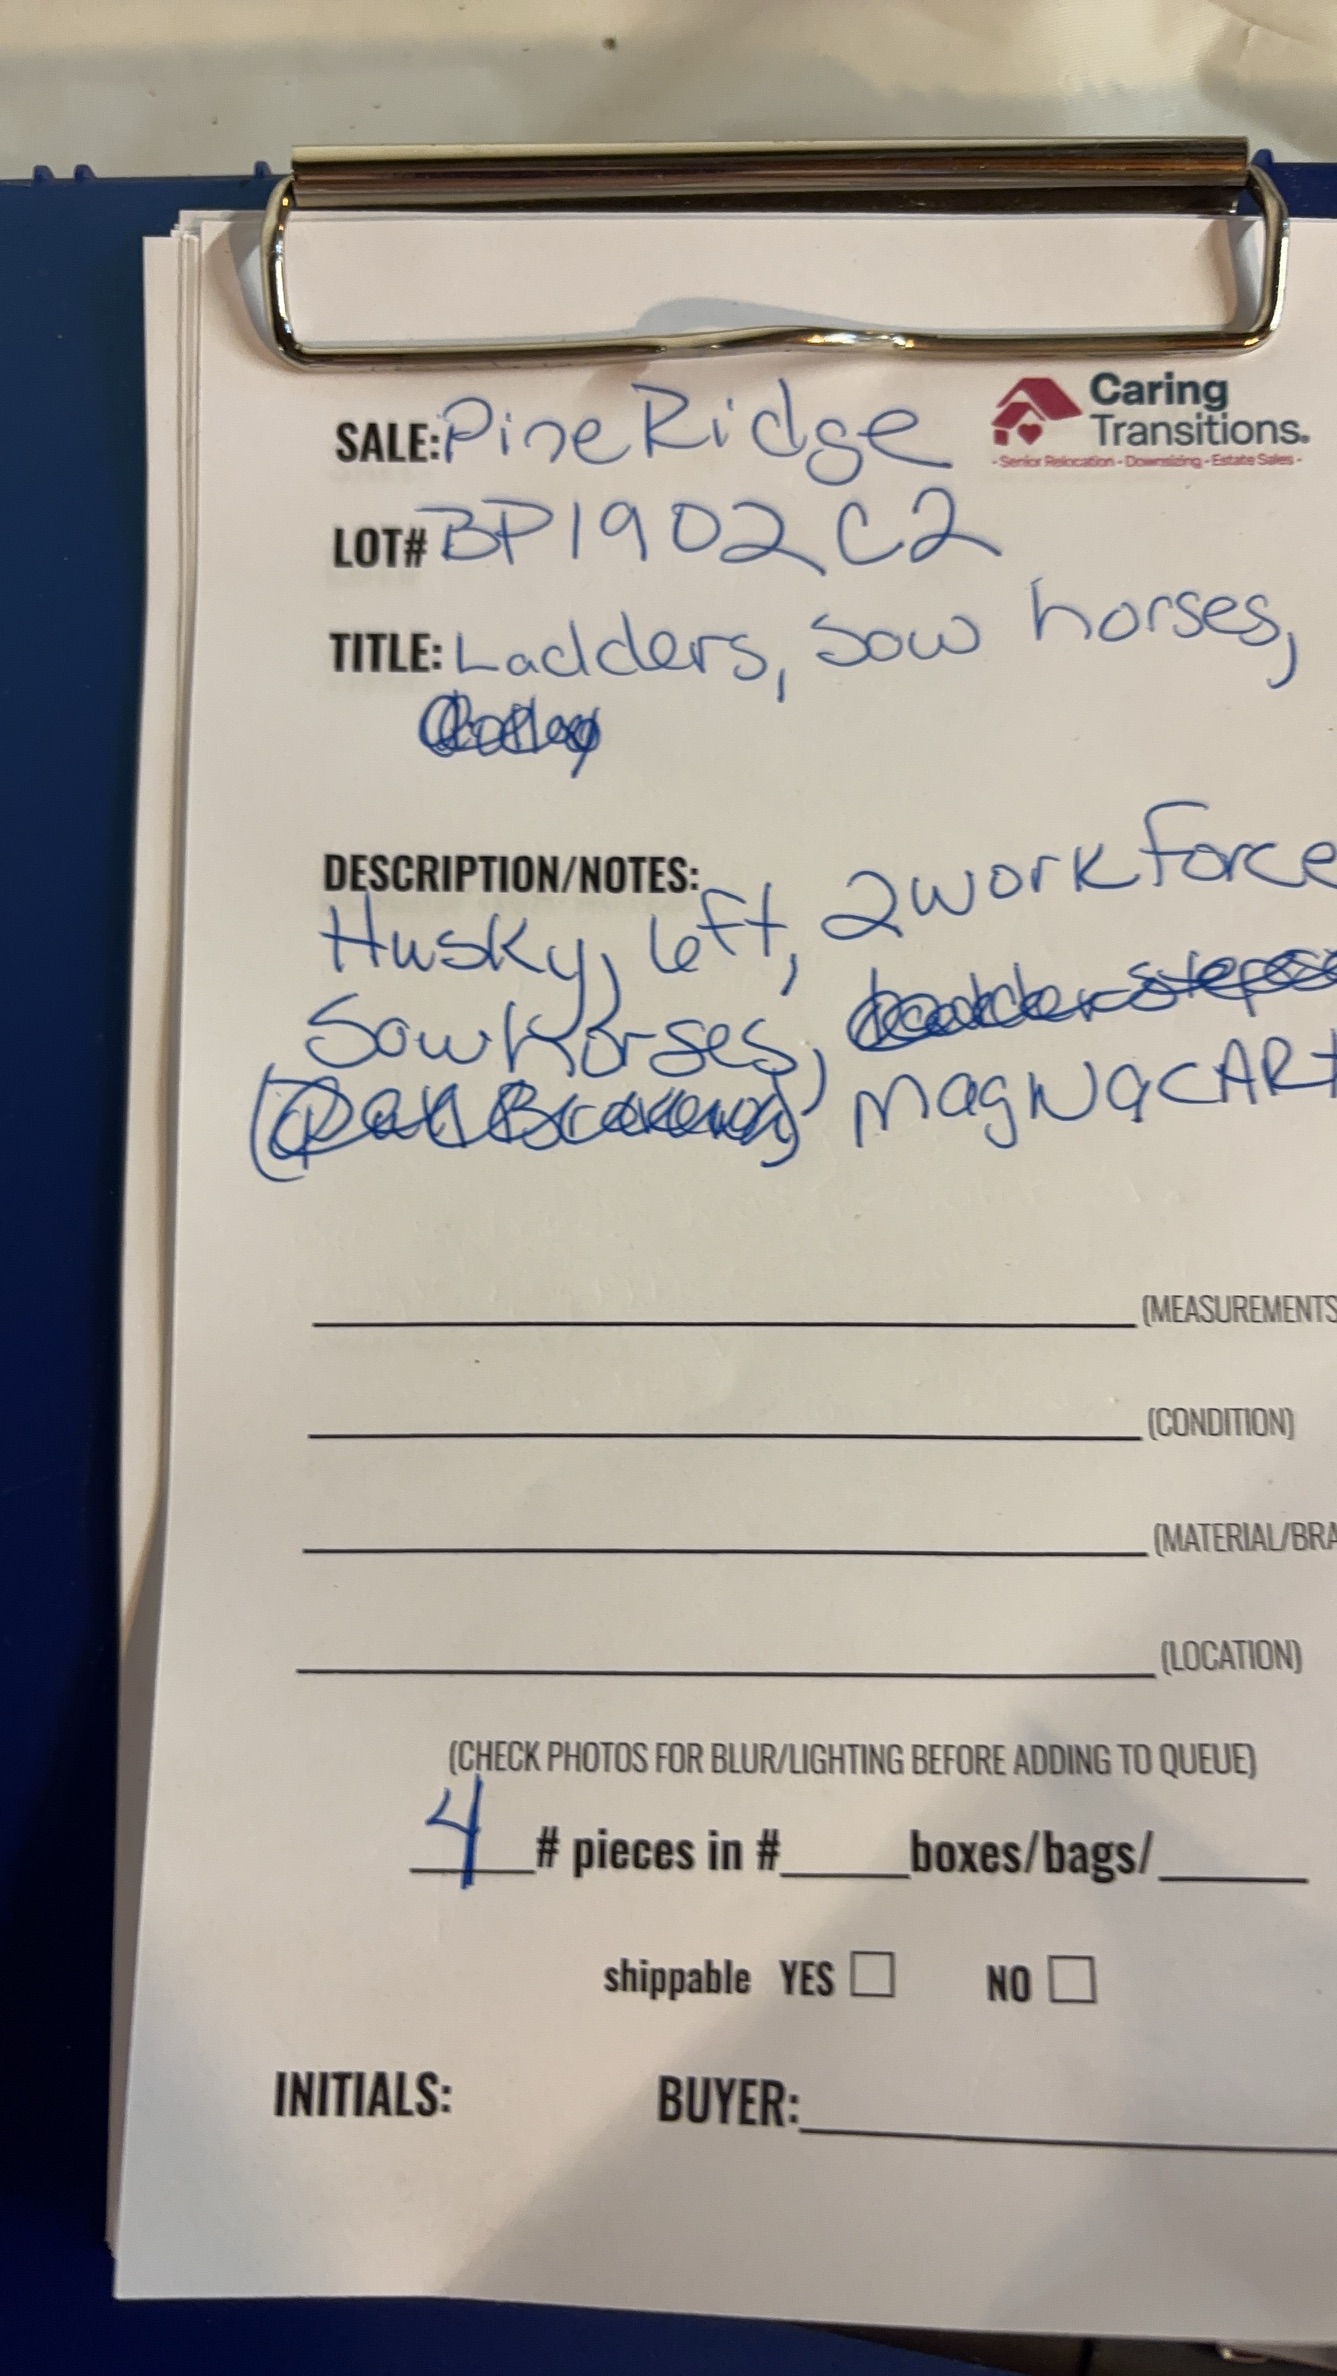 Caring
Transitions.
- Senior Relocation - Downsizing - Estate Sales -
SALE: Pine Ridge
LOT# BP1902 C2
TITLE: Ladders, Sow horses,
DESCRIPTION/NOTES:
Husky, left, 2 workforce
Sow Horses,
MagNaCARt
(MEASUREMENTS
(CONDITION)
(MATERIAL/BRA
(LOCATION)
(CHECK PHOTOS FOR BLUR/LIGHTING BEFORE ADDING TO QUEUE)
4 # pieces in #____ boxes/bags/____
shippable YES ☐ NO ☐
INITIALS: BUYER:____